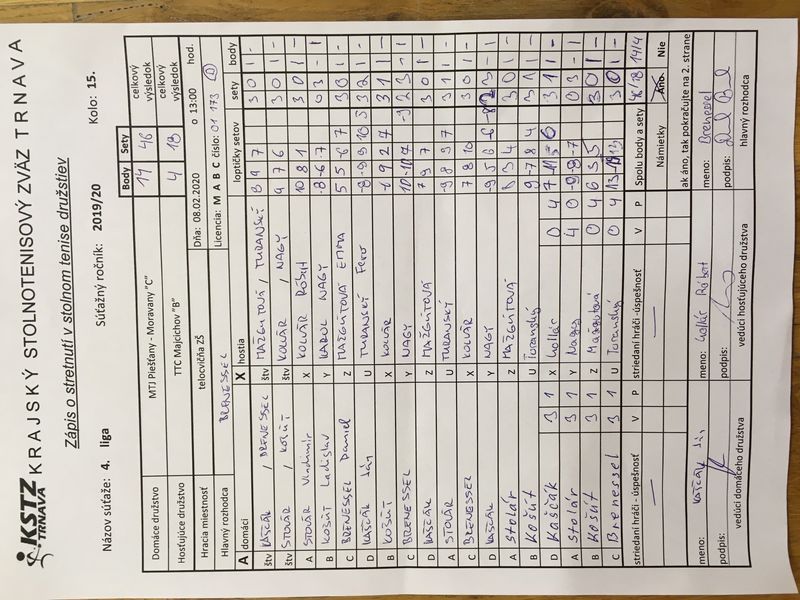 KSTZ
TRNAVA
KRAJSKÝ STOLNOTENISOVÝ ZVÄZ TRNAVA
Zápis o stretnutí v stolnom tenise družstiev
Názov súťaže: 4. liga Súťažný ročník: 2019/20 Kolo: 15.
Body Sety celkový výsledok
Domáce družstvo MTJ Piešťany - Moravany "C" 14 46
celkový výsledok
Hosťujúce družstvo TTC Majcichov "B" 4 18
Hracia miestnosť telocvičňa ZŠ Dňa: 08.02.2020 o 13:00 hod.
Hlavný rozhodca BRENESSEL Licencia: M A B C číslo: 01 173
A domáci X hostia loptičky setov sety body
štv KAŠČÁK / BRENESSEL štv MAŽGÚTOVÁ / TURANSKÝ 8 9 7 3 0 1 -
štv STOLÁR / KOŠÚT štv KOLLÁR / NAGY 9 7 6 3 0 1 -
A STOLÁR Vladimír X KOLLÁR Róbert 10 8 1 3 0 1 -
B KOŠÚT Ladislav Y KAROL NAGY -8 -6 -7 0 3 - 1
C BRENESSEL Daniel Z MAŽGÚTOVÁ EMMA 5 5 -6 7 3 1 -
D KAŠČÁK Ján U TURANSKÝ Fero 3 2 1 -
B KOŠÚT X KOLLÁR 3 1 1 -
C BRENESSEL Y NAGY 2 3 - 1
D KAŠČÁK Z MAŽGÚTOVÁ 7 9 7 3 0 1 -
A STOLÁR U TURANSKÝ -9 8 9 7 3 1 1 -
C BRENESSEL X KOLLÁR 7 8 10 3 0 1 -
D KAŠČÁK Y NAGY - 1
A Stolár Z MAŽGÚTOVÁ 8 3 4 3 0 1 -
B Košút U Turanský 9 -7 8 4 3 1 1 -
D Kaščák 3 1 X Kollár 0 4 3 1 1 -
A Stolár 3 1 Y Nagy 4 0 -9 -8 -7 0 3 - 1
B Košút 3 1 Z Mažgútová 0 4 3 0 1 -
C Brenessel 3 1 U Turanský 0 4 3 0 1 -
striedaní hráči - úspešnosť V P striedaní hráči - úspešnosť V P Spolu body a sety 46 18 14/4
Námietky Áno Nie
ak áno, tak pokračujte na 2. strane
meno: Kaščák Ján meno: Kollár Róbert meno: Brenessel
podpis: podpis: podpis:
vedúci domáceho družstva vedúci hosťujúceho družstva hlavný rozhodca